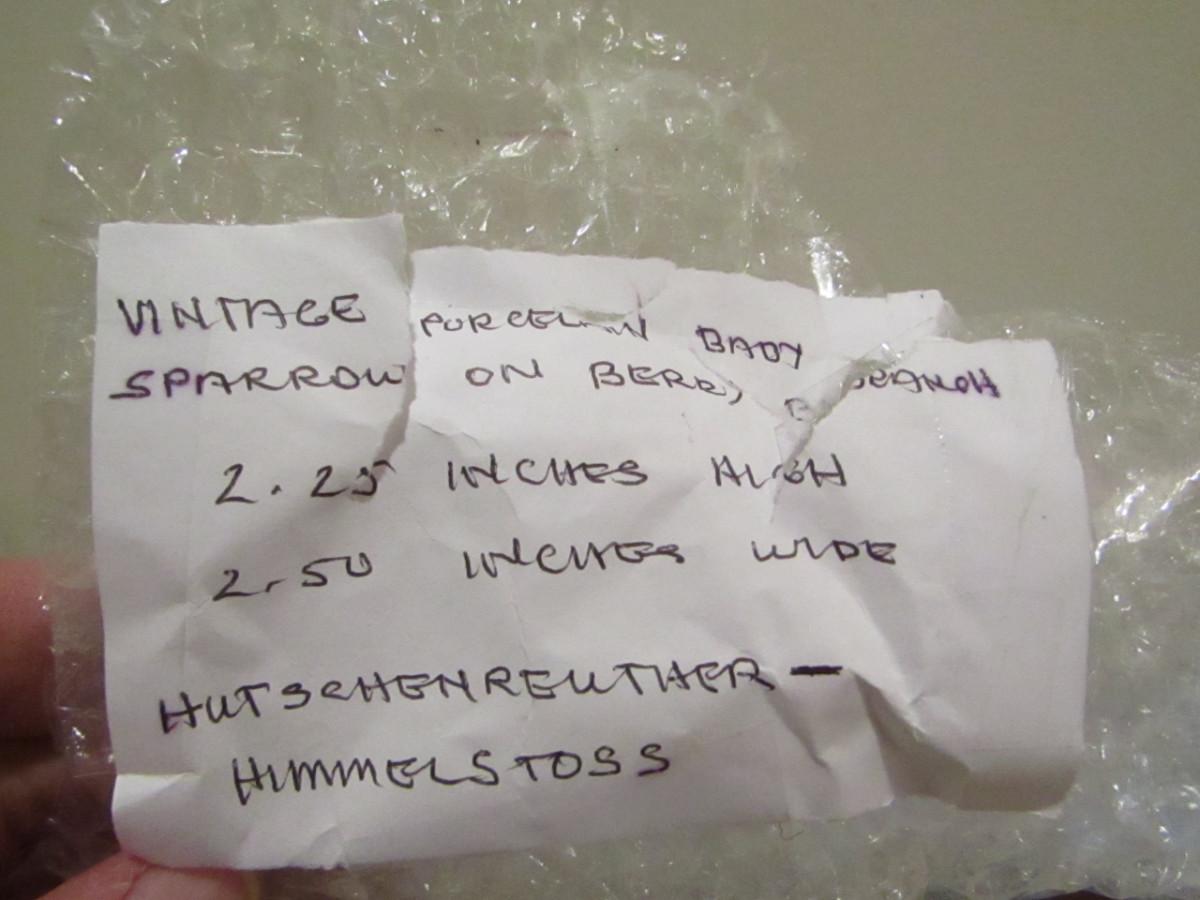 VINTAGE PORCELAIN BABY
SPARROW ON BERRY BRANCH
2.25 INCHES HIGH
2.50 INCHES WIDE
HUTSCHENREUTHER —
HIMMELSTOSS